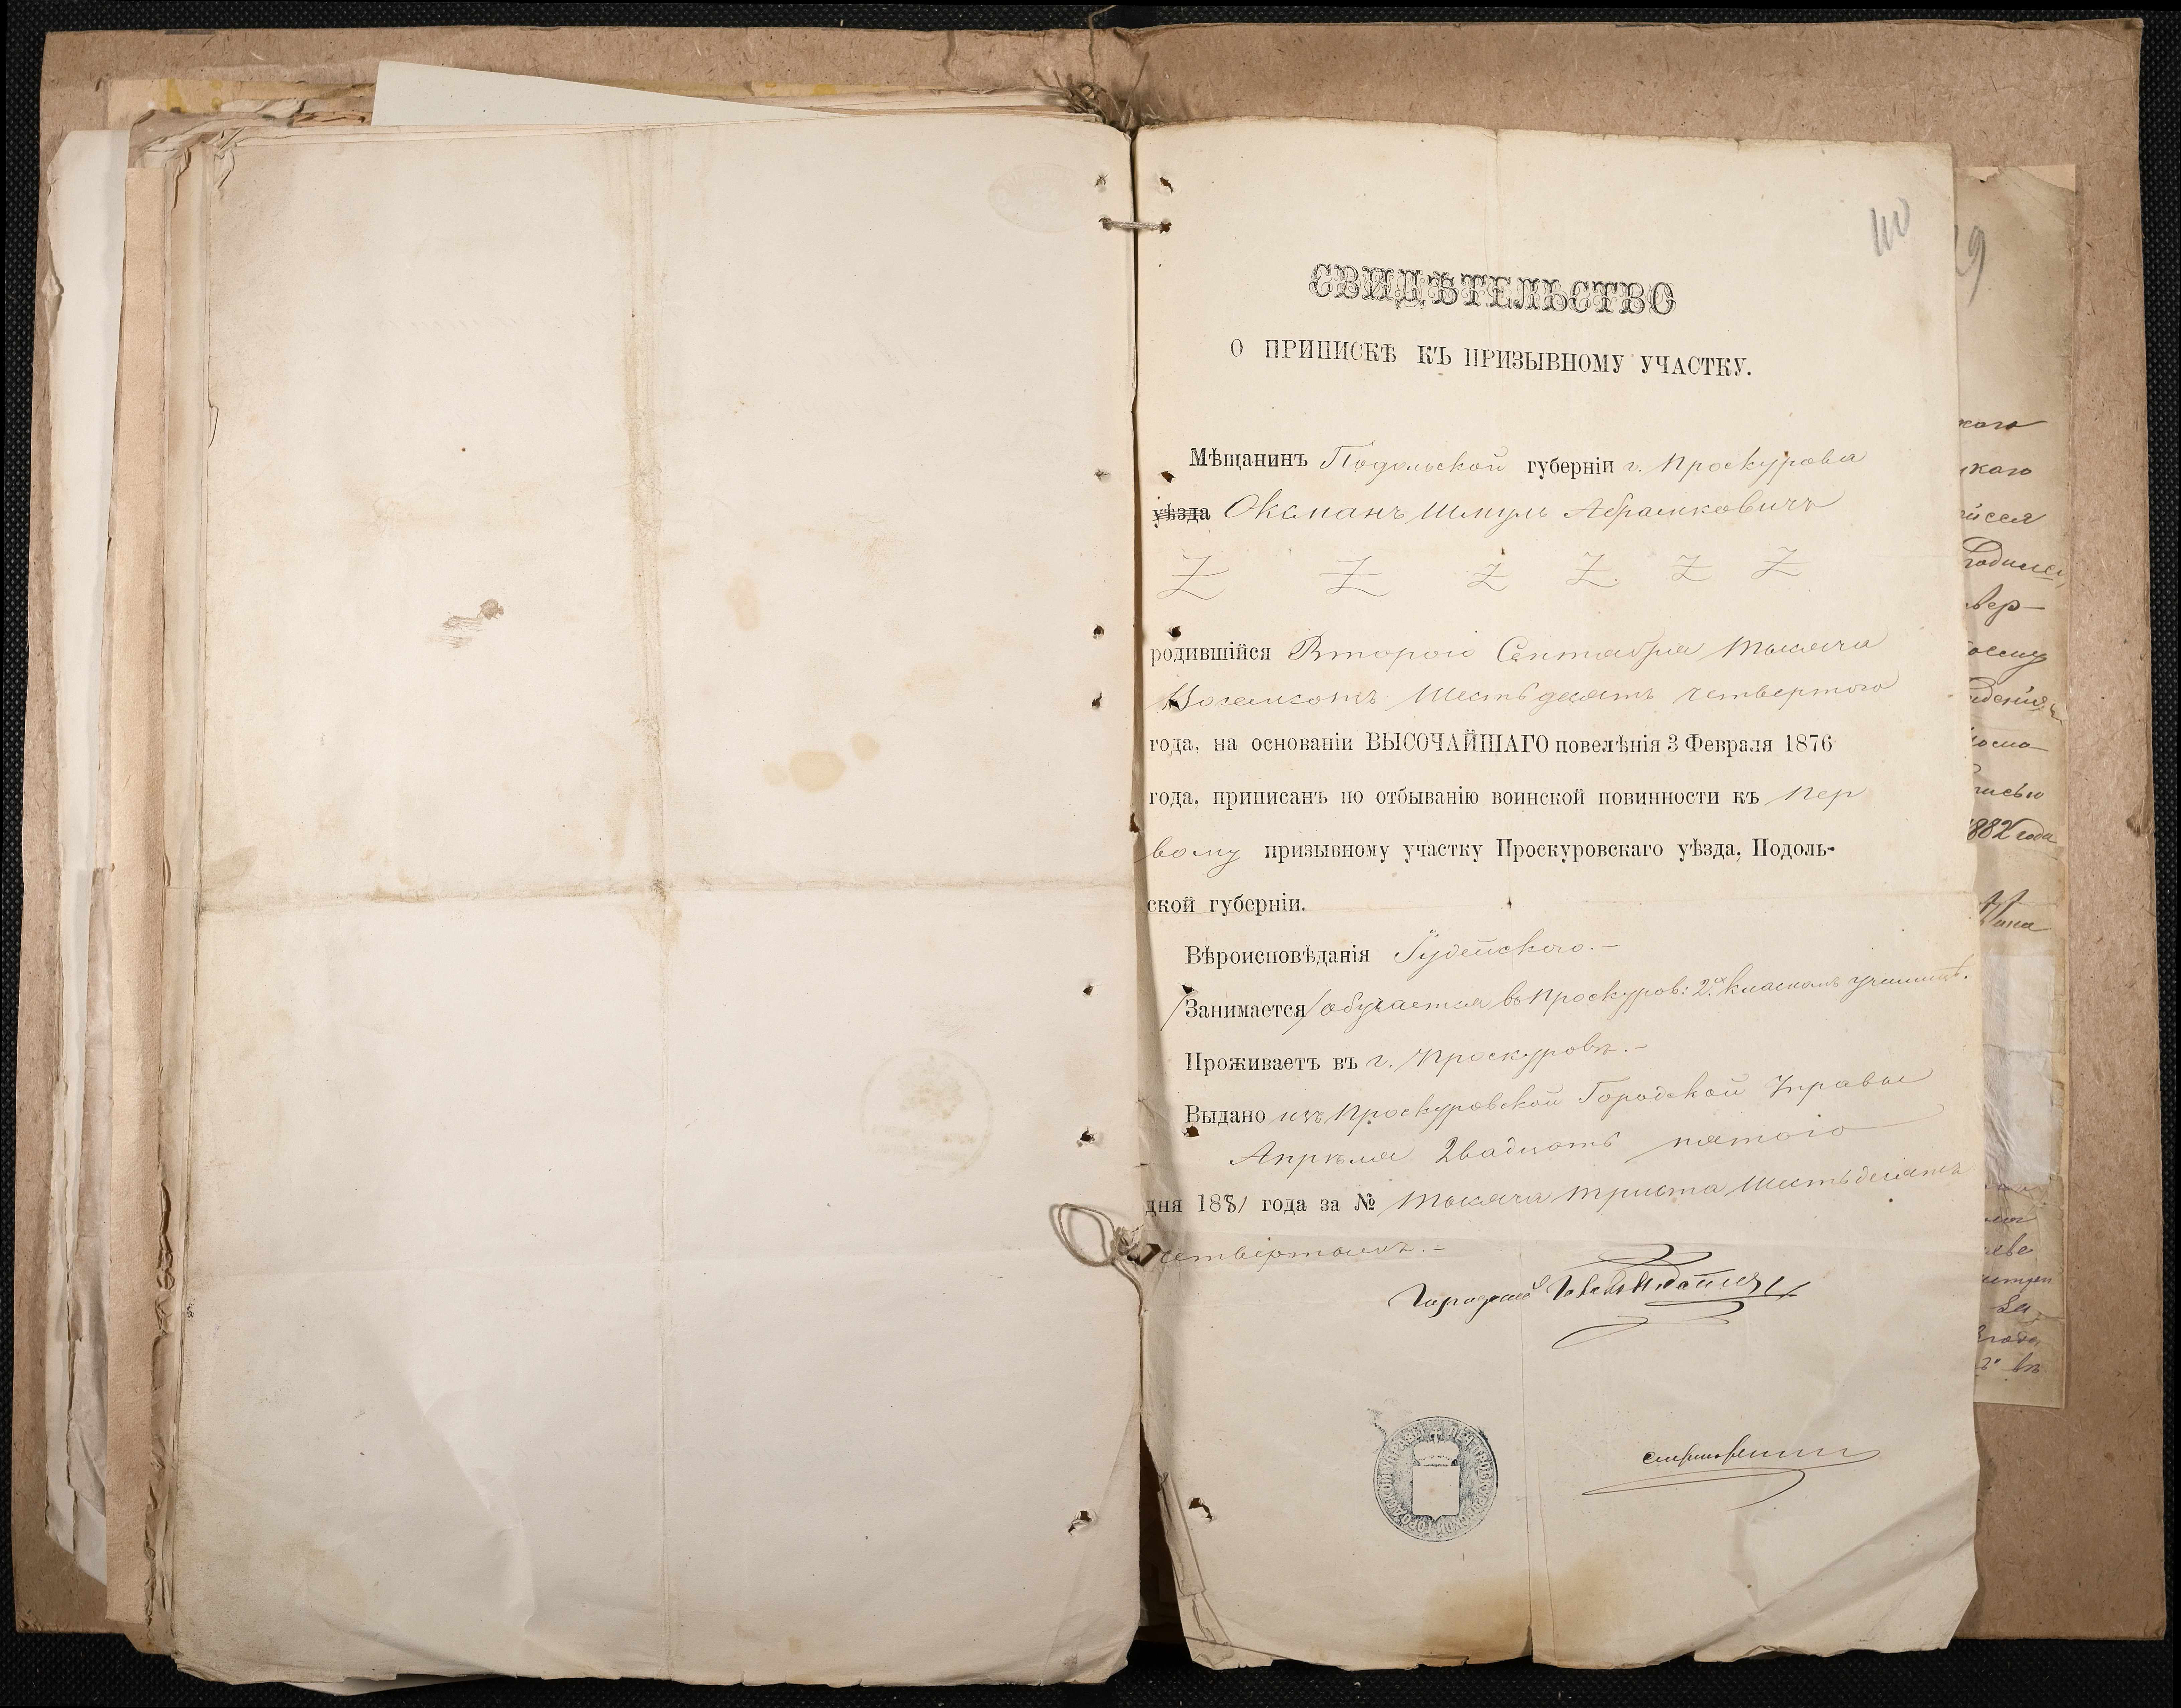 110
СВИДѢТЕЛЬСТВО
О ПРИПИСКѢ КЪ ПРИЗЫВНОМУ УЧАСТКУ.
Мѣщанинъ Подольской губерніи г. Проскурова
уѣзда Оксманъ Шмуль Абрамковичъ
Z Z Z Z Z Z
родившійся Второго Сентября тысяча
Восемсотъ шестьдесятъ четвертого
года, на основаніи ВЫСОЧАЙШАГО повелѣнія 3 Февраля 1876
года, приписанъ по отбыванію воинской повинности къ пер
вому призывному участку Проскуровскаго уѣзда, Подоль-
ской губерніи.
Вѣроисповѣданія Іудейского.—
/Занимается/ обучается въ Проскуров: 2.х класномъ училищѣ.
Проживаетъ въ г. Проскуровѣ.—
Выдано изъ Проскуровской Городской Управы
Апрѣля двадцать пятого
дня 1881 года за № тысяча триста шестьдесятъ
четвертымъ.—
Городской
ПРОСКУРОВСКОЙ ГОРОДСКОЙ УПРАВЫ
9
кого
каго
родился
вер-
1882 года
за
въ